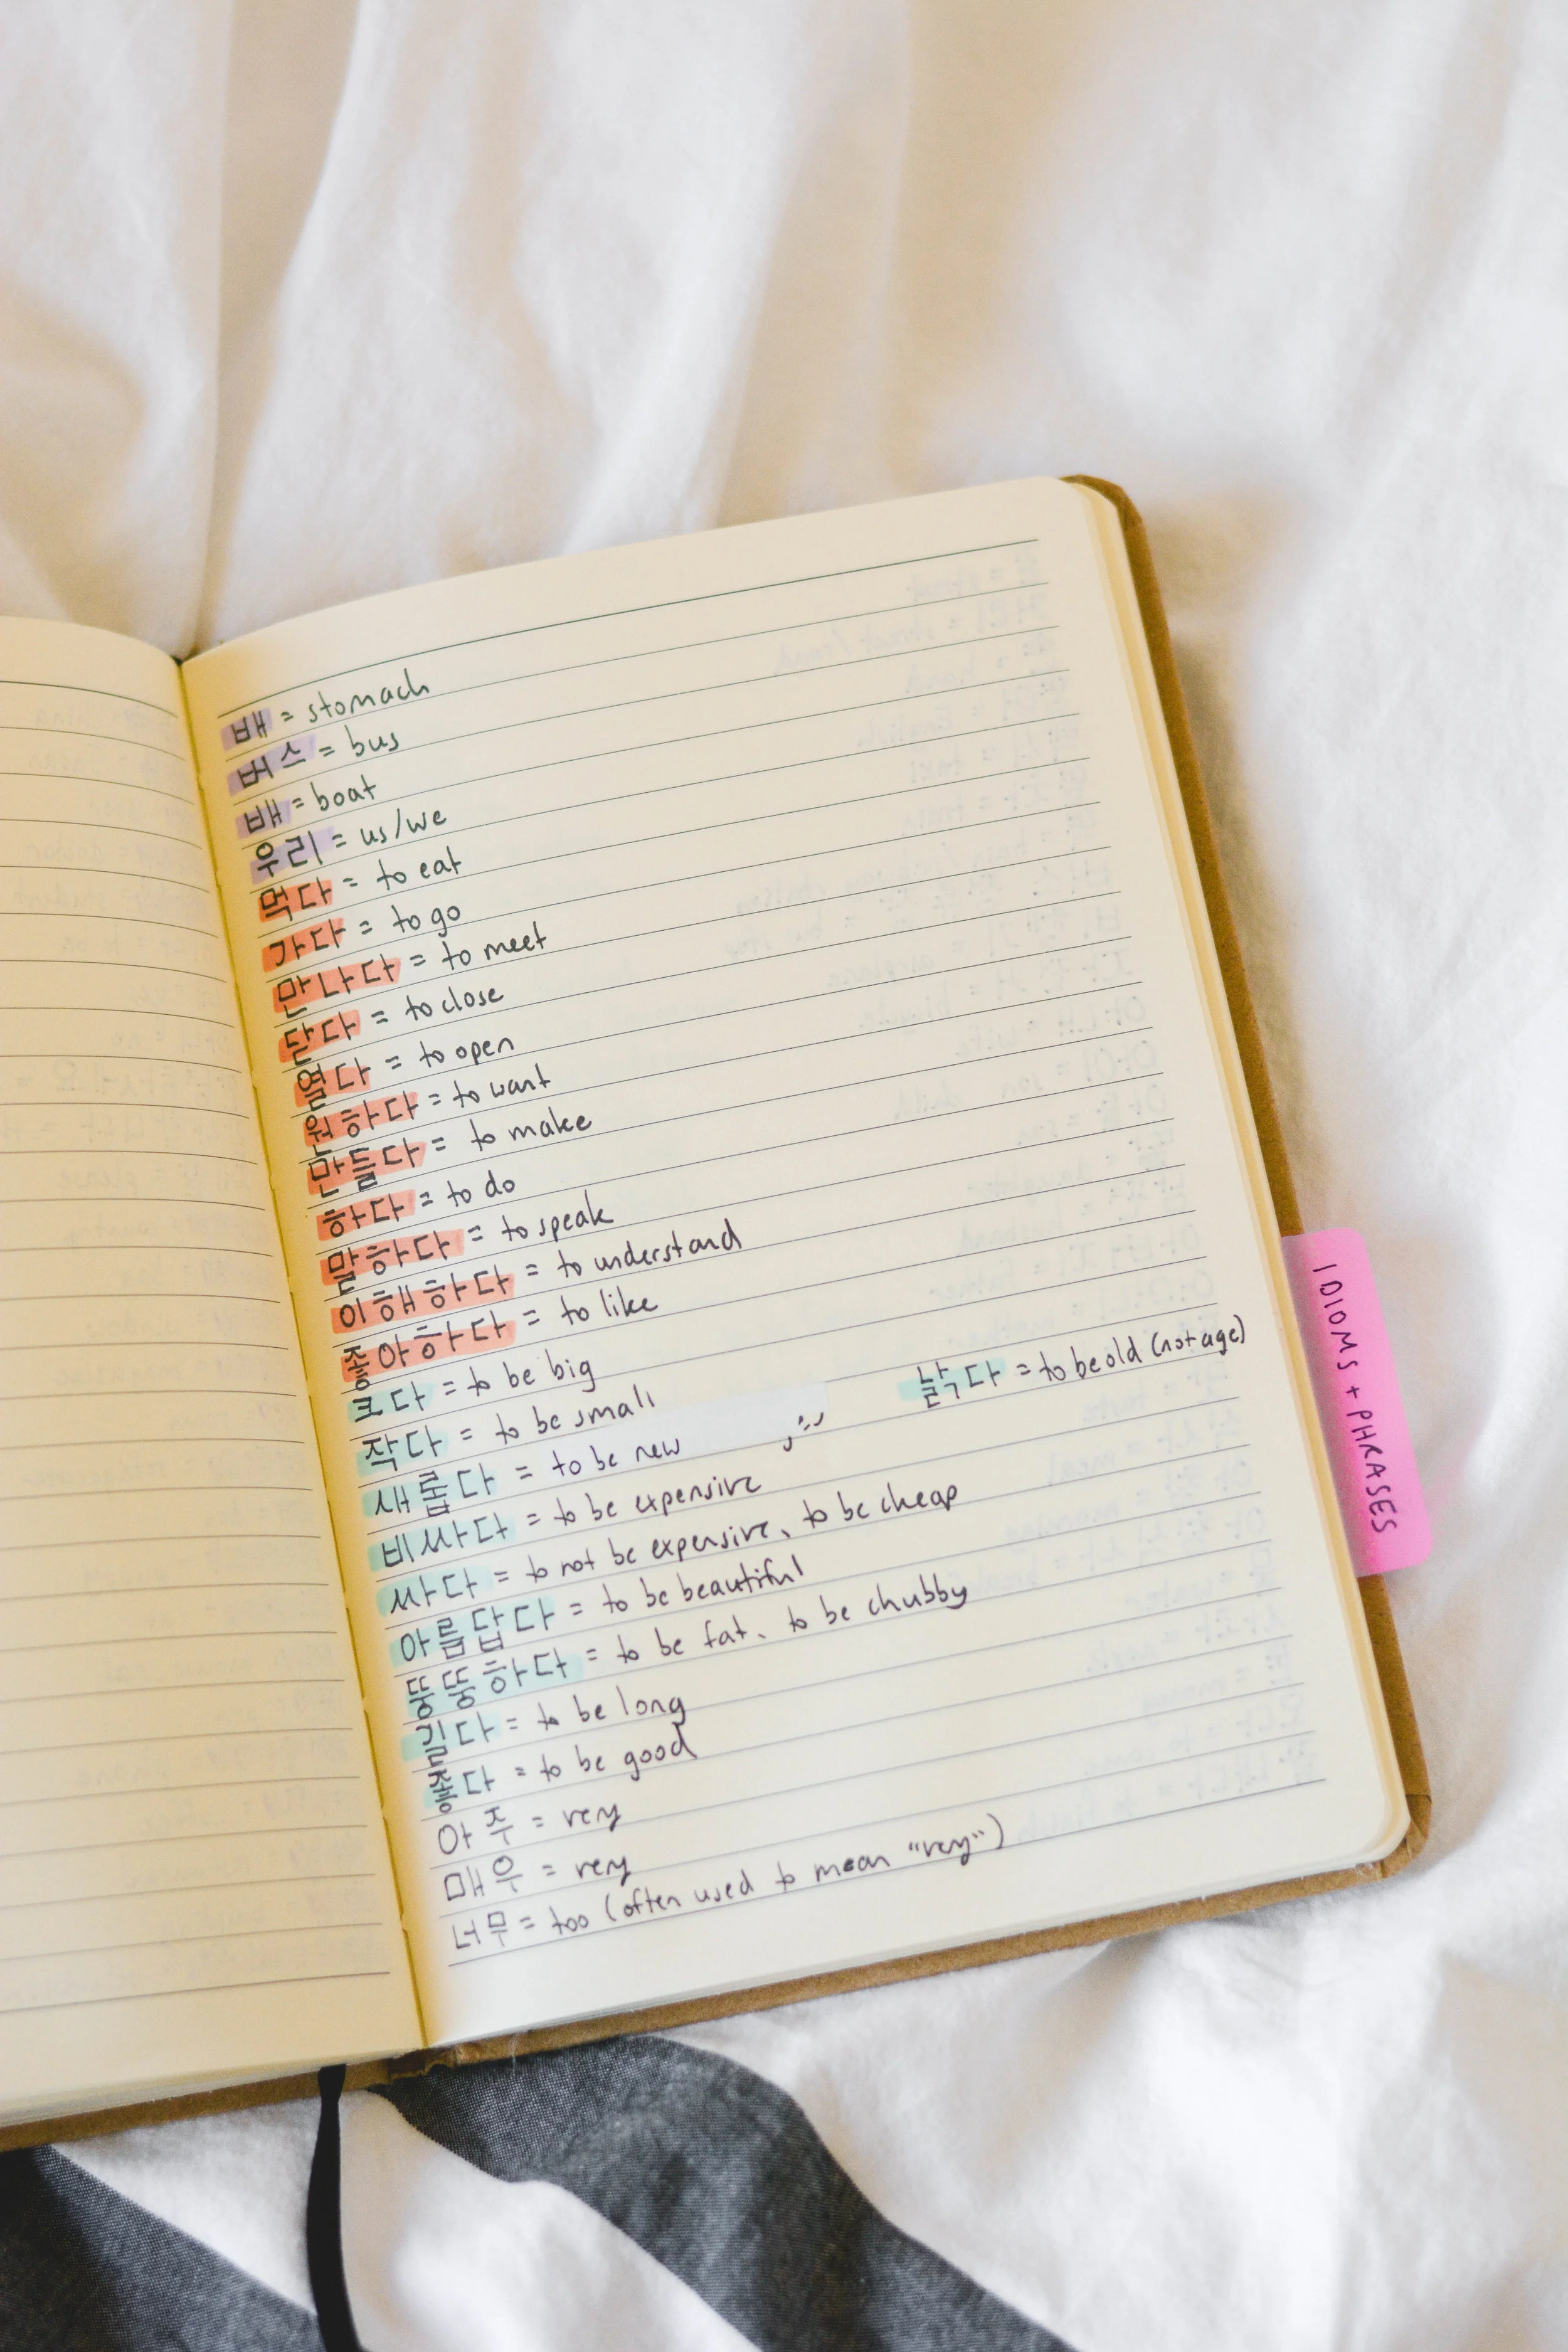 배 = stomach
버스 = bus
배 = boat
우리 = us/we
먹다 = to eat
가다 = to go
만나다 = to meet
닫다 = to close
열다 = to open
원하다 = to want
만들다 = to make
하다 = to do
말하다 = to speak
이해하다 = to understand
좋아하다 = to like
크다 = to be big
낡다 = to be old (not age)
작다 = to be small
새롭다 = to be new
비싸다 = to be expensive
싸다 = to not be expensive, to be cheap
아름답다 = to be beautiful
뚱뚱하다 = to be fat, to be chubby
길다 = to be long
좋다 = to be good
아주 = very
매우 = very
너무 = too (often used to mean "very")
IDIOMS + PHRASES